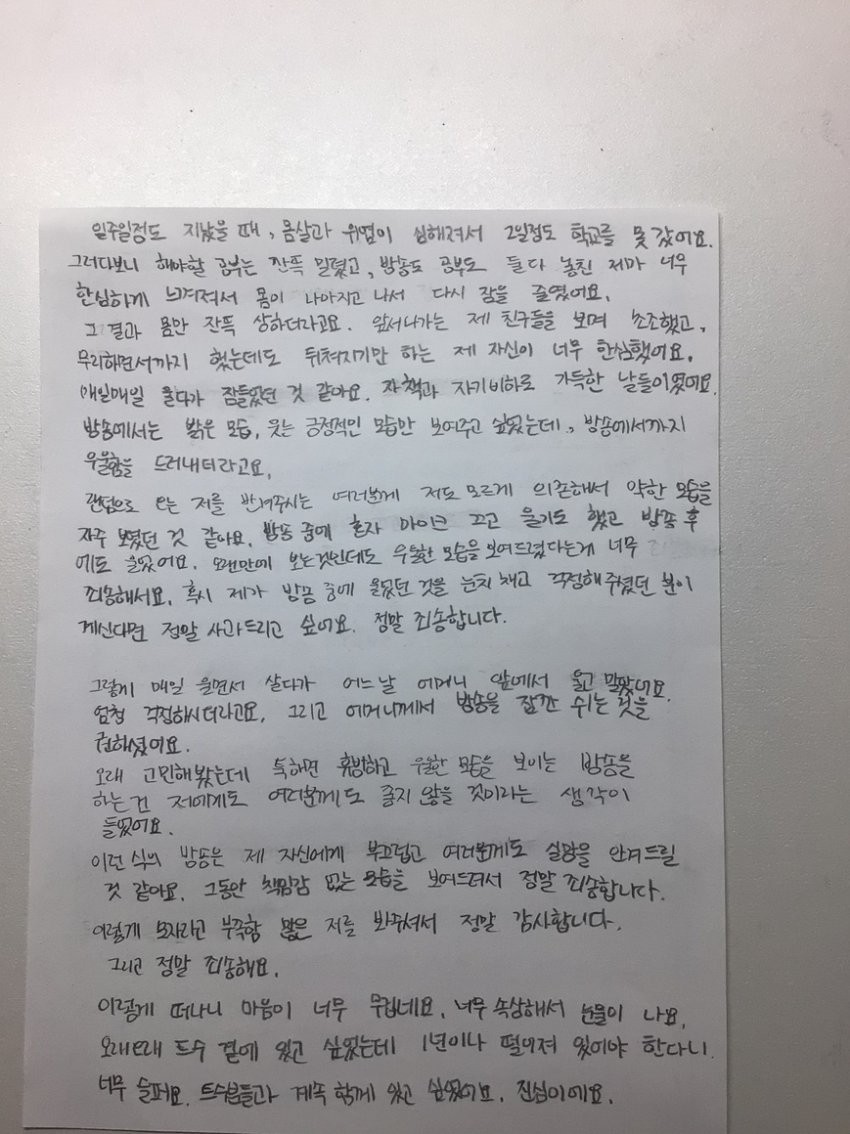 일주일정도 지났을 때, 몸살과 위염이 심해져서 2일정도 학교를 못 갔어요.
그러다보니 해야할 공부는 잔뜩 밀렸고, 방송도 공부도 둘다 놓친 제가 너무
한심하게 느껴져서 몸이 나아지고 나서 다시 잠을 줄였어요.
그 결과 몸만 잔뜩 상하더라고요. 앞서나가는 제 친구들을 보며 초조했고,
무리하면서까지 했는데도 뒤쳐지기만 하는 제 자신이 너무 한심했어요.
매일매일 울다가 잠들었던 것 같아요. 자책과 자기비하로 가득한 날들이였어요.
방송에서는 밝은 모습, 웃는 긍정적인 모습만 보여주고 싶었는데, 방송에서까지
우울함을 드러내더라고요.
랜덤으로 오는 저를 반겨주시는 여러분께 저도 모르게 의존해서 약한 모습을
자주 보였던 것 같아요. 방송 중에 혼자 마이크 끄고 울기도 했고 방송 후
에도 울었어요. 오랜만에 보는것인데도 우울한 모습을 보여드렸다는게 너무
죄송해서요. 혹시 제가 방송 중에 울었던 것을 눈치 채고 걱정해주셨던 분이
계신다면 정말 사과드리고 싶어요. 정말 죄송합니다.
그렇게 매일 울면서 살다가 어느날 어머니 앞에서 울고 말았어요.
엄청 걱정하시더라고요. 그리고 어머니께서 방송을 잠깐 쉬는 것을
권하셨어요.
오래 고민해봤는데 툭하면 휴방하고 우울한 모습을 보이는 방송을
하는건 저에게도 여러분께도 좋지 않을 것이라는 생각이
들었어요.
이런 식의 방송은 제 자신에게 부끄럽고 여러분께도 실망을 안겨드릴
것 같아요. 그동안 책임감 없는 모습을 보여드려서 정말 죄송합니다.
이렇게 모자라고 부족함 많은 저를 봐주셔서 정말 감사합니다.
그리고 정말 죄송해요.
이렇게 떠나니 마음이 너무 무겁네요. 너무 속상해서 눈물이 나요.
오래오래 트수 곁에 있고 싶었는데 1년이나 떨어져 있어야 한다니
너무 슬퍼요. 트수분들과 계속 함께 있고 싶었어요. 진심이에요.